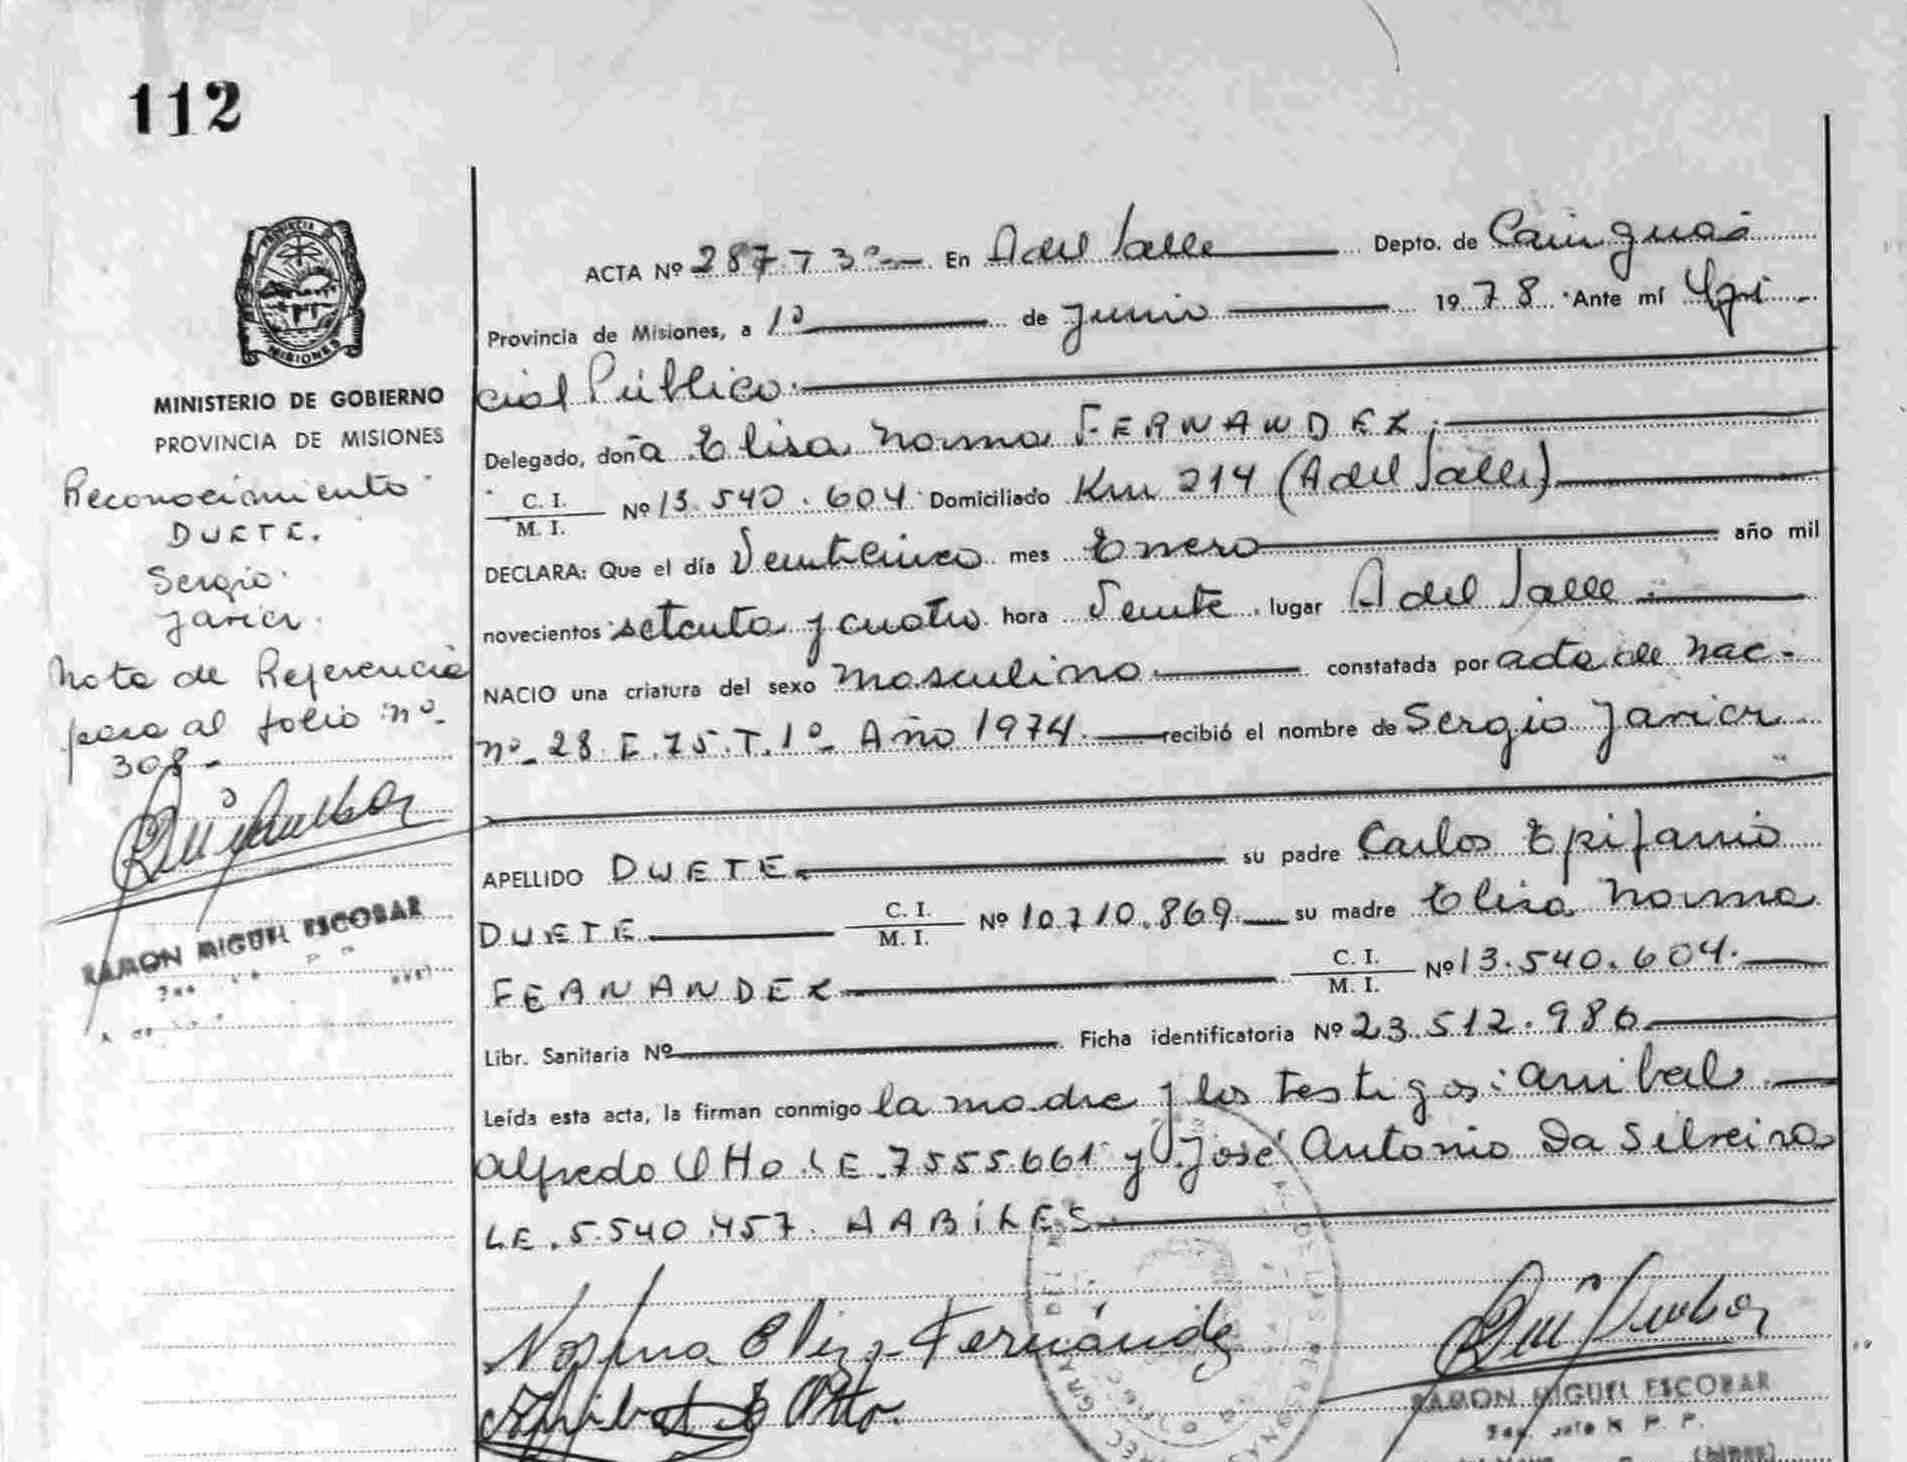 112
PROVINCIA DE
MISIONES
MINISTERIO DE GOBIERNO
PROVINCIA DE MISIONES
Reconocimiento
DUETE.
Sergio
Javier.
Nota de Referencia
pasa al folio nº
308-
RAMON MIGUEL ESCOBAR
ACTA Nº 287 T 3º En A del Valle Depto. de Cainguas
Provincia de Misiones, a 1º de Junio 1978 Ante mí Ofi
cial Público.
Delegado, doña Elisa Norma FERNANDEZ.
C. I.
M. I. Nº 13.540.604 Domiciliado Km 214 (A del Valle)
DECLARA: Que el día Veinticinco mes Enero año mil
novecientos setenta y cuatro hora Veinte lugar A del Valle.
NACIO una criatura del sexo masculino constatada por acta de nac-
nº 28 F. 75. T. 1º Año 1974. recibió el nombre de Sergio Javier
APELLIDO DUETE su padre Carlos Epifanio
DUETE C. I.
M. I. Nº 10.710.869 su madre Elisa Norma
FERNANDEZ C. I.
M. I. Nº 13.540.604.
Libr. Sanitaria Nº Ficha identificatoria Nº 23.512.986
Leída esta acta, la firman conmigo la madre y los testigos: Anibal
Alfredo Otto LE. 7555661 y José Antonio Da Silveira
LE. 5.540.457. HABILES
Norma Eliza Fernández
RAMON MIGUEL ESCOBAR